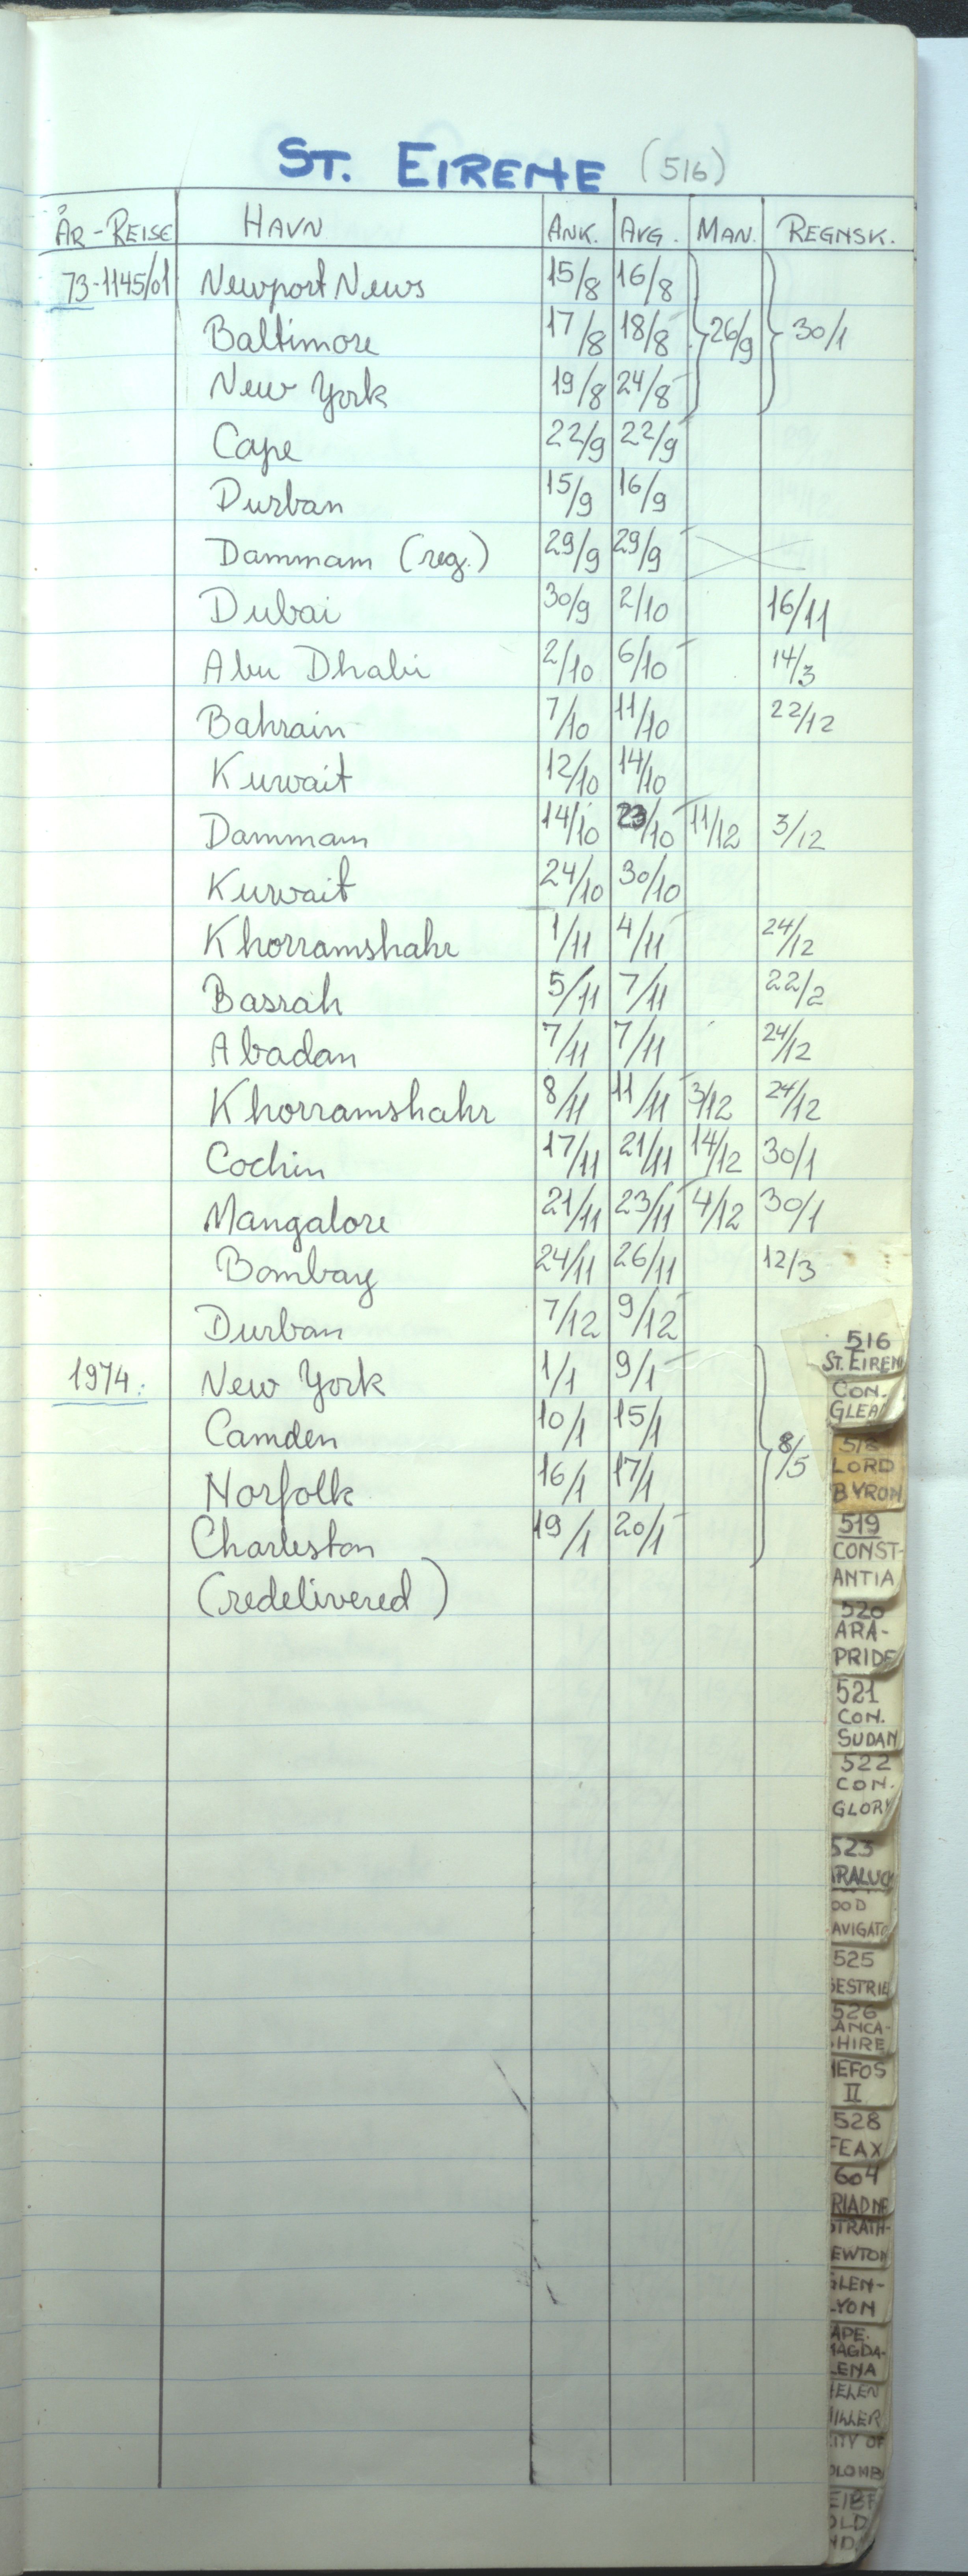 ST. EIRENE (516)
ÅR-REISE HAVN ANK. AVG. MAN. REGNSK.
73-1145/01 Newport News 15/8 16/8
Baltimore 17/8 18/8 26/9 30/1
New York 19/8 24/8
Cape 22/9 22/9
Durban 15/9 16/9
Dammam (reg.) 29/9 29/9
Dubai 30/9 2/10 16/11
Abu Dhabi 2/10 6/10 14/3
Bahrain 7/10 11/10 22/12
Kuwait 12/10 14/10
Dammam 14/10 23/10 11/12 3/12
Kuwait 24/10 30/10
Khorramshahr 1/11 4/11 24/12
Basrah 5/11 7/11 22/2
Abadan 7/11 7/11 24/12
Khorramshahr 8/11 11/11 3/12 24/12
Cochin 17/11 21/11 14/12 30/1
Mangalore 21/11 23/11 4/12 30/1
Bombay 24/11 26/11 12/3
Durban 7/12 9/12
1974: New York 1/1 9/1
Camden 10/1 15/1 8/5
Norfolk 16/1 17/1
Charleston 19/1 20/1
(redelivered)
516
ST. EIREN
CON.
GLEA
518
LORD
BYRON
519
CONST-
ANTIA
520
ARA-
PRIDE
521
CON.
SUDAN
522
CON.
GLORY
523
RALUCK
OOD
AVIGATO
525
SESTRIE
526
LANCA-
SHIRE
NEFOS
II
528
FEAX
604
RIADNE
STRATH-
EWTON
GLEN-
LYON
APE.
MAGDA-
LENA
HELEN
MILLER
CITY OF
OLOMB